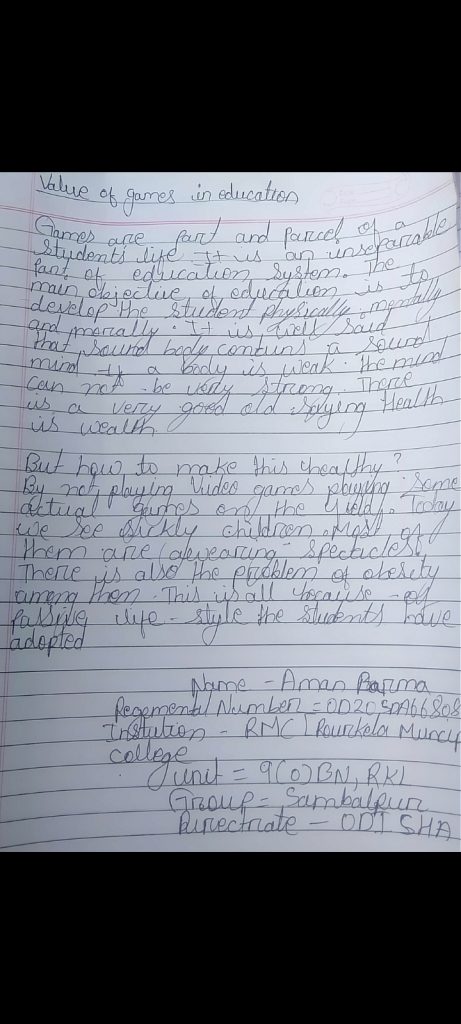 Value of games in education
Games are part and parcel of a
students life It is an unseparrable
part of education system. The
main objective of education is to
develop the student physically, mentally
and morally. It is well said
that sound body contuns a sound
mind If a body is weak the mind
can not be very strong. There
is a very good old Saying Health
is wealth.
But how to make this healthy?
By not playing Video games playing some
actual games on the field. Today
we see sickly children. Most of
them are wearing spectacles.
There is also the problem of obesity
among them. This is all because of
passive life-style the students have
adopted
Name - Aman Barma
Regemental Number = OD20SDA66808
Instution - RMC Rourkela Muncip
college
unit = 9(O)BN, RKL
Group = Sambalpur
Directrate - ODISHA